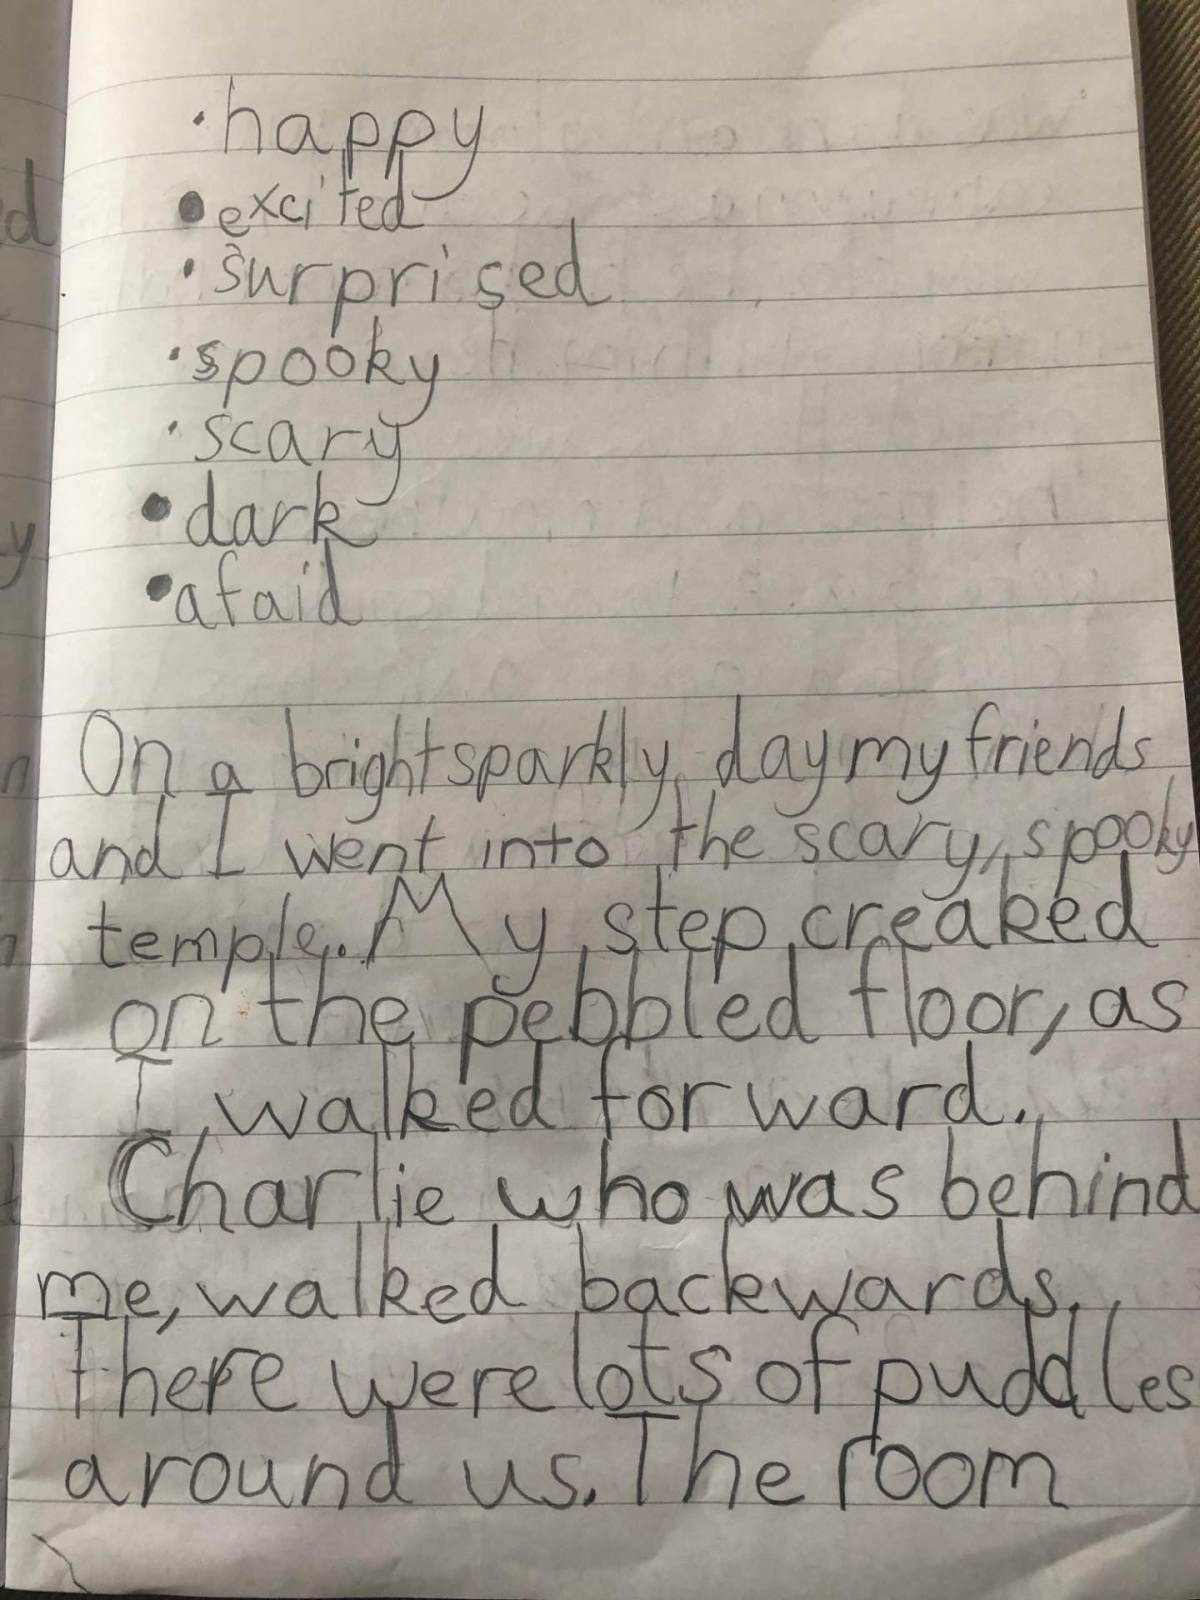 • happy
• excited
• surprised
• spooky
• scary
• dark
• afaid
On a bright sparkly, day my friends
and I went into the scary, spooky
temple. My step creaked
on the pebbled floor, as
I walked forward.
Charlie who was behind
me, walked backwards.
There were lots of puddles
around us. The room